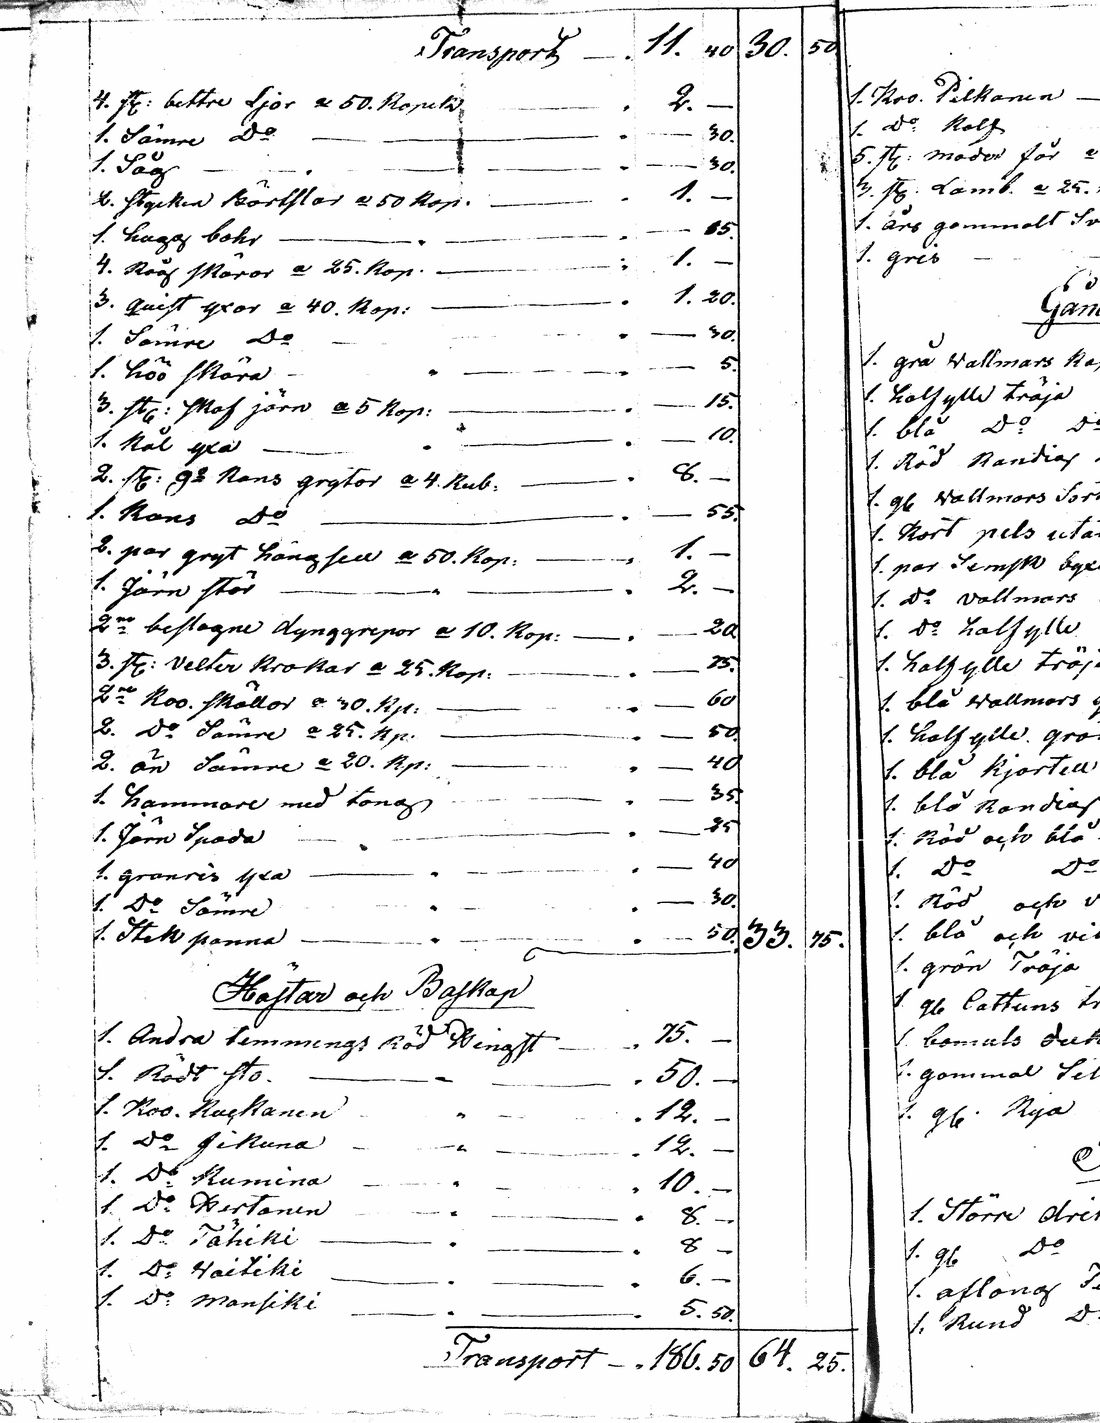 Transport — . 11. 40 30. 50
4. st: bettre Ljor a 50. Kopek . 2. —
1. Sämre Do . — 30.
1. Såg . — 30.
2. stycken a 50 Kop. . 1. —
1. hugg bohr . — 15.
4. Råg skäror a 25. Kop. : 1. —
3. quist yxor a 40. Kop: . 1. 20.
1. Sämre Do . — 30.
1. höö skära . — 5.
3. st: skaf järn a 5 Kop: . — 15.
1. Kål yxa . — 10.
2. st: gl Kans grytor a 4. Rub: . 8. —
1. Kans Do . — 55.
2. par gryt hängsell a 50. Kop: . 1. —
1. Järn stör . 2. —
2ne beslagne dynggrepor a 10. Kop: . — 20
3. st: velter Krokar a 25. Kop: . — 75.
2ne Koo. skällor a 30. Kp: . — 60
2. Do Sämre a 25. Kp: . — 50.
2. än Sämre a 20. Kp: . — 40
1. hammare med tong . — 35
1. Järn Spada . — 25
1. granris yxa . — 40
1. Do Sämre . — 30.
1. Stek panna . — 50. 33. 75.
Hästar och Boskap
1. Andra temmings Röd Hingst . 75. —
1. Rödt sto. . 50. —
1. Koo. . 12. —
1. Do . 12. —
1. Do Rumina . 10. —
1. Do Hertanen . 8. —
1. Do Tähiki . 8 —
1. Do Waitiki . 6. —
1. Do Mansiki . 5. 50.
Transport — . 186. 50 64. 25.
1. Koo. Pilkanen
1. Do Kalf
5. st: moder får a
3. st. Lamb. a 25.
1. års gammalt
1. gris
1. grå Wallmars
1. halfylle tröja
1. blå Do Do
1. Röd Randig
1. gl Wallmars
1. Kort pels utan
1. par Semsk
1. Do Vallmars
1. Do halfylle
1. halfylle
1. blå Wallmars
1. halfylle
1. blå Kjortell
1. blå Randig
1. Röd och blå
1. Do Do
1. Röd och
1. blå och
1. grön Tröja
1. gl Cattuns
1. bomuls
1. gammal
1. gl. Rya
1. Större
1. gl Do
1. aflong
1. Rund